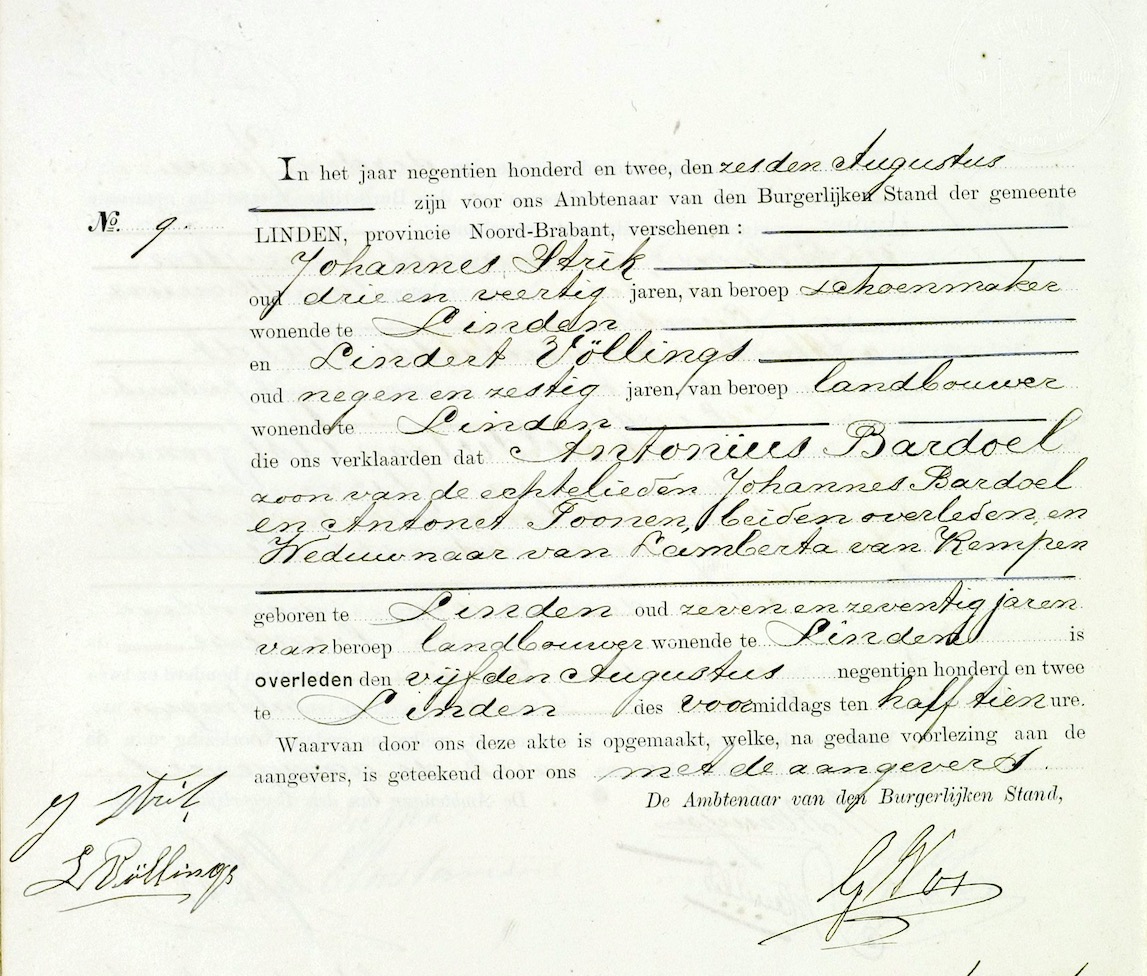 In het jaar negentien honderd en twee, den zesden Augustus
zijn voor ons Ambtenaar van den Burgerlijken Stand der gemeente
No. 9.
LINDEN, provincie Noord-Brabant, verschenen :
Johannes Strik
oud drie en veertig jaren, van beroep schoenmaker
wonende te Linden
en Lindert Völlings
oud negen en zestig jaren, van beroep landbouwer
wonende te Linden
die ons verklaarden dat Antonius Bardoel
zoon van de echtelieden Johannes Bardoel
en Antonet Toonen, beiden overleden, en
Weduwnaar van Lamberta van Kempen
geboren te Linden oud zeven en zeventig jaren
van beroep landbouwer wonende te Linden is
overleden den vijfden Augustus negentien honderd en twee
te Linden des voormiddags ten half tien ure.
Waarvan door ons deze akte is opgemaakt, welke, na gedane voorlezing aan de
aangevers, is geteekend door ons met de aangevers.
De Ambtenaar van den Burgerlijken Stand,
J Strik
L Völlings
G Vos